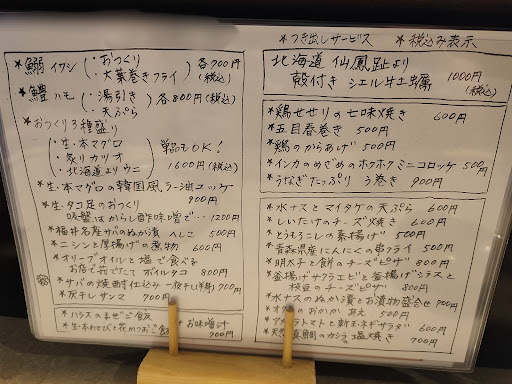 *鰯 イワシ
・おつくり
・大葉巻きフライ
各700円
(税込)
*鱧 ハモ
・湯引き
・天ぷら
各800円(税込)
*おつくり3種盛り
・生・本マグロ
・炙りカツオ
・北海道よりウニ
単品もOK!
1600円(税込)
*生・本マグロの韓国風ラー油ユッケ
900円
*生・タコ足のおつくり
吸盤はからし酢味噌で… 1200円
*福井名産サバのぬか漬 へしこ 500円
*ニシンと厚揚げの煮物 600円
*オリーブオイルと塩で食べる
お店で茹でたて ボイルタコ 800円
*サバの焼
一夜干し(半身) 700円
*灰干しサンマ 700円
*ハラスのまぜご飯
お味噌汁
900円
*つき出しサービス *税込み表示
北海道 仙鳳趾より
殻付き シェル牡蠣 1000円
(税込)
*鶏せせりの七味焼き 600円
*五目春巻き 500円
*鶏のからあげ 500円
*インカのめざめのホクホクミニコロッケ 500円
*うなぎたっぷり う巻き 900円
*水ナスとマイタケの天ぷら 600円
*しいたけのチーズ焼き 600円
*とうもろこしの素揚げ 500円
*青森県産にんにくの串フライ 500円
*明太子と餅のチーズピザ 800円
*釜揚げサクラエビと釜揚げシラスと
枝豆のチーズピザ 800円
*水ナスのぬか漬とお漬物盛合せ 700円
*オクラのおかかあえ 500円
トマトと新玉ネギサラダ 600円
*天然真鯛のカシラ 塩焼き 700円